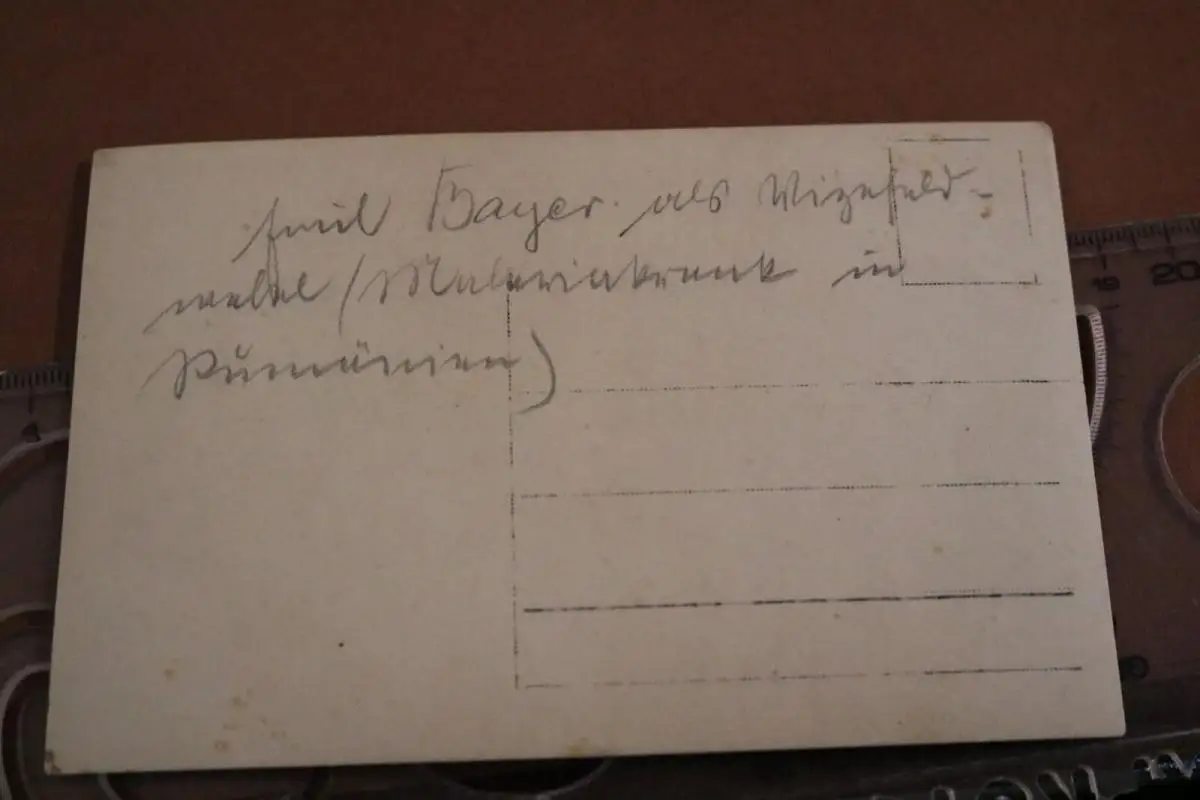 Emil Bayer. als Vizefeld-
webel (Malariakrank in
Rumänien)
19 20